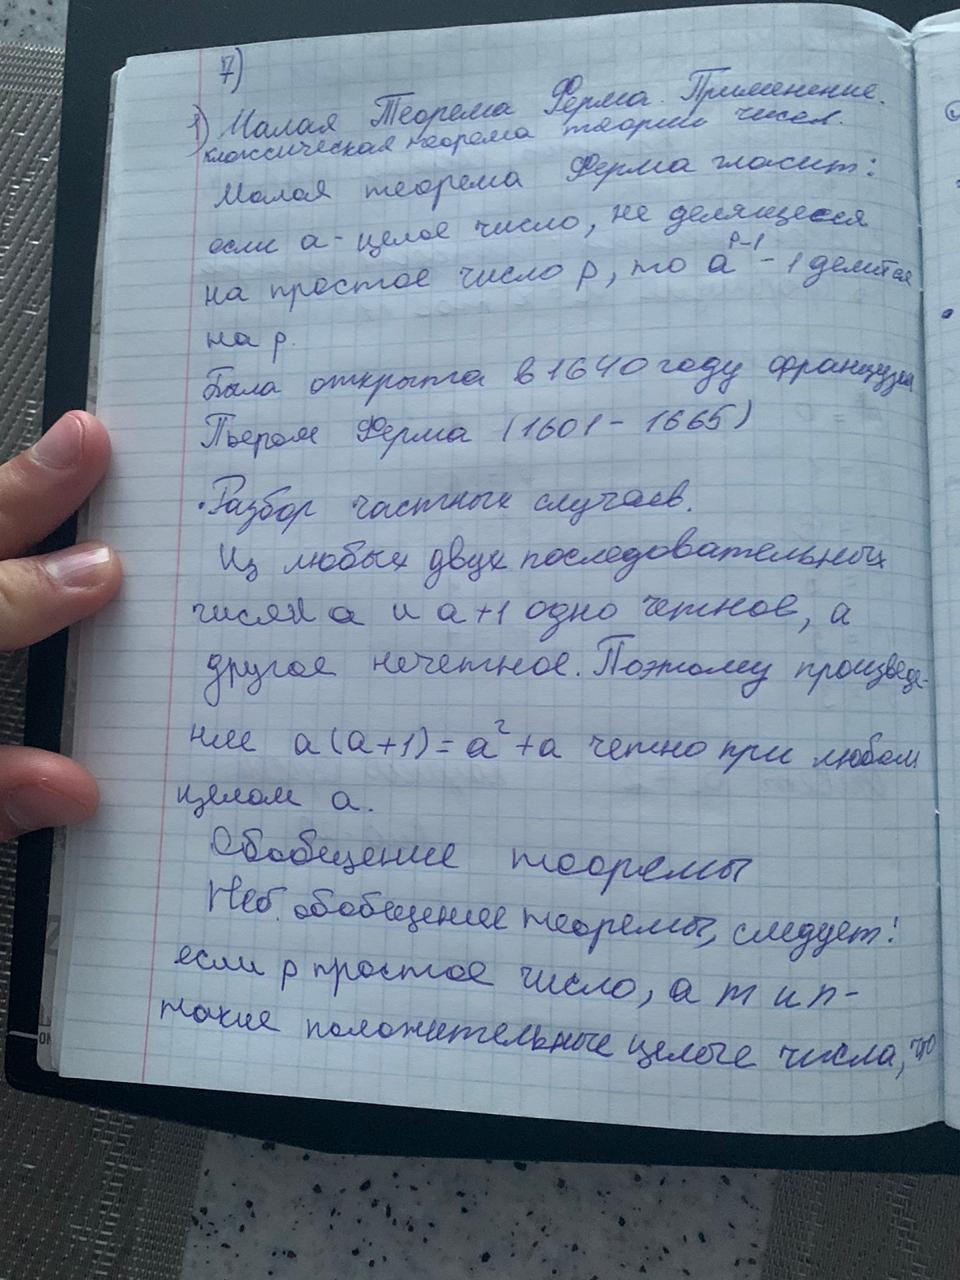 7)
1) Малая Теорема Ферма. Применение.
классическая теорема теории чисел.
Малая теорема Ферма гласит:
если a - целое число, не делящееся
на простое число p, то a^{p-1} - 1 делится
на p.
Была открыта в 1640 году французом
Пьером Ферма (1601 - 1665)
• Разбор частных случаев.
Из любых двух последовательных
чисел a и a+1 одно четное, а
другое нечетное. Поэтому произведе-
ние a(a+1) = a²+a четно при любом
целом a.
Обобщение теоремы
Неб. обобщение теоремы, следует:
если p простое число, а m и n -
такие положительные целые числа, что